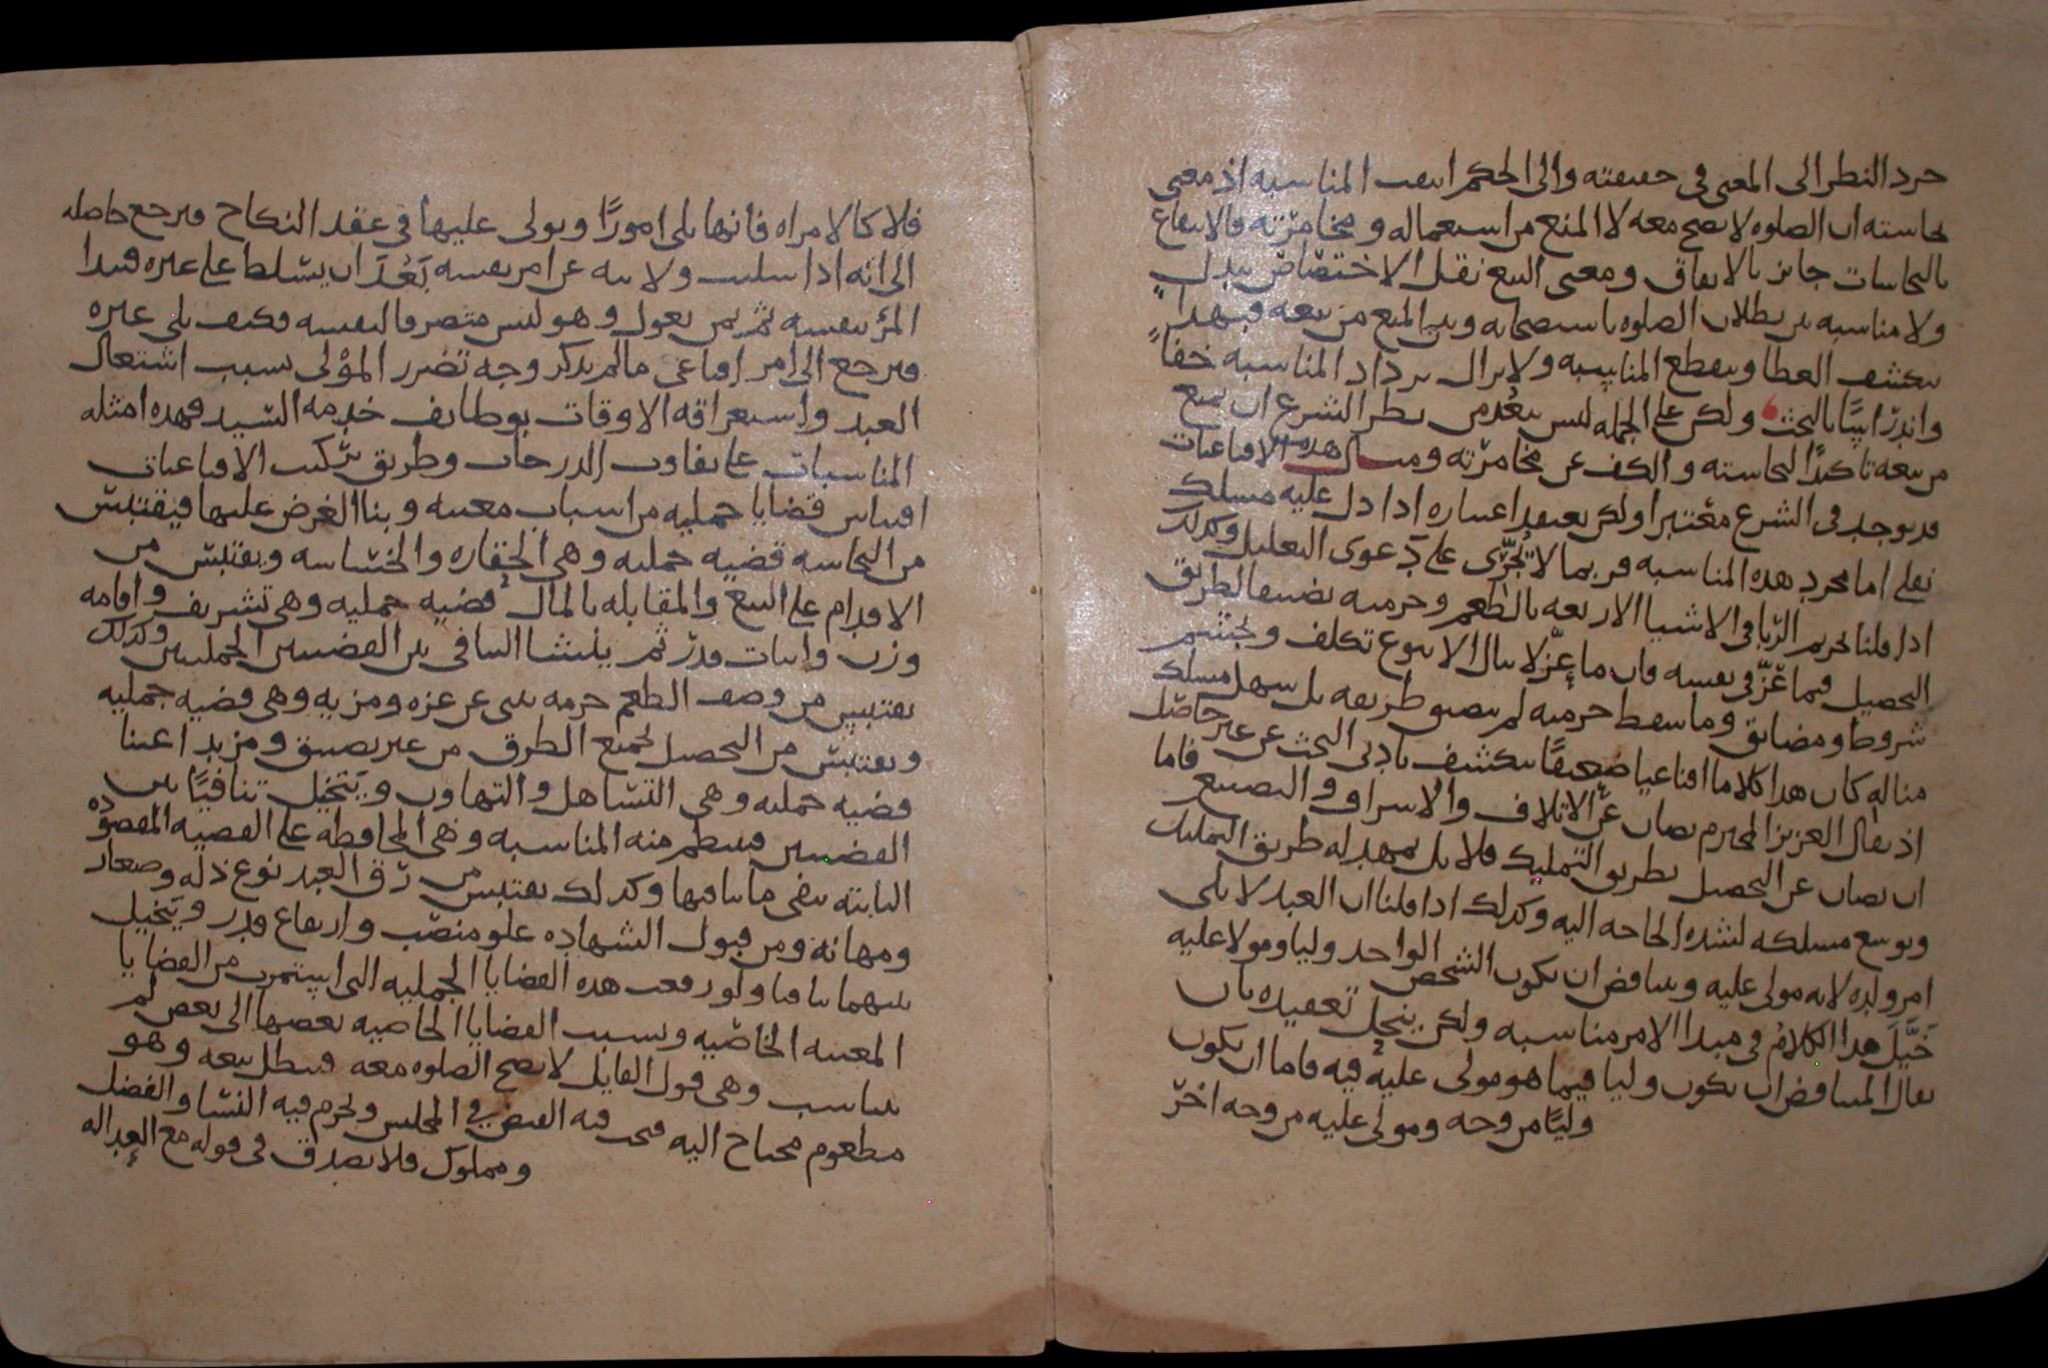 جرد النظر الى المعنى فى حقيقته والى الحكم انتفت المناسبه اذ معنى
نجاسته ان الصلوه لا تصح معه لا المنع من استعماله و مخامرته فالانتفاع
بالنجاسات جايز بالاتفاق ومعنى البيع نقل الاختصاص ببدل
ولا مناسبه بين بطلان الصلوه باستصحابه وبين المنع من بيعه فبهذا
ينكشف الغطا وينقطع المناسبه ولا يزال يزداد المناسبه خفاً
واندراسًا بالبحث ولكن على الجمله ليس يبعد من نظر الشرع ان يمنع
من بيعه تاكيدًا لنجاسته والكف عن مخامرته ومثال هذه الاقناعيات
قد يوجد فى الشرع معتبرا ولكن يعتقد اعتباره اذا دل عليه مسلك
نقلى اما مجرد هذه المناسبه فربما لا تجرّى على دعوى التعليل وكذلك
اذا قلنا تحريم الربا فى الاشيا الاربعه بالطعم وحرمته تضييقا لطريق
التحصيل فيما عزّ فى نفسه فان ما عزّ لا ينال الا بنوع تكلف وتجشم
شروط ومضايق وما سقط حرمته لم يضيق طريقه بل سهل مسلك
مناله كان هذا كلاما اقناعيا ضعيفًا ينكشف بادنى البحث عن غير حاصل
اذ يقال العزيز المحترم يصان عن الاتلاف والاسراف والتضييع فاما
ان يصان عن التحصيل بطريق التمليك فلا بل يمهد له طريق التمليك
ويوسع مسلكه لشده الحاجه اليه وكذلك اذا قلنا ان العبد لا يلى
امر ولده لانه مولى عليه ويتناقض ان يكون الشخص الواحد وليا ومولا عليه
خَيَّلَ هذا الكلام فى مبدا الامر مناسبه ولكن ينحل تعقيده بان
يقال المتناقض ان يكون وليا فيما هو مولى عليه فيه فاما ان يكون
وليًا من وجه ومولى عليه من وجه اخر
فلا كالامراه فانها تلى امورًا ويولى عليها فى عقد النكاح فيرجع حاصله
الى انه اذا سلبت ولايته عن امر نفسه بَعُدَ ان يتسلط على غيره فيبدا
المرؤ بنفسه ثم بمن يعول وهو ليس متصرفا لنفسه فكيف يلى غيره
فيرجع الى امر اقناعى ما لم يذكر وجه تضرر المولى بسبب اشتغال
العبد واستغراقه الاوقات بوظايف خدمه السيد فهذه امثله
المناسبات على تفاوت الدرجات وطريق تركيب الاقناعيات
اقتباس قضايا جمليه من اسباب معينه وبنا الغرض عليها فيقتبس
من النجاسه قضيه جمليه وهى الحقاره والخساسه ويقتبس من
الاقدام على البيع والمقابله بالمال قضيه جمليه وهى تشريف واقامه
وزن واثبات قدر ثم ينشا التنافى بين القضيتين الجمليتين وكذلك
يقتبس من وصف الطعم حرمه تنبى عن عزه ومزيه وهى قضيه جمليه
ويقتبس من التحصيل بجميع الطرق من غير تضييق ومزيد اعتنا
قضيه جمليه وهى التساهل والتهاون ويتخيل تنافيًا بين
القضيتين فينتظم منه المناسبه وهى المحافظه على القضيه المقصوده
الثابته بنفى ما ينافيها وكذلك يقتبس من رق العبد نوع ذله وصغار
ومهانه ومن قبول الشهاده علو منصب وارتفاع قدر ويتخيل
بينهما تنافيا ولو رفعت هذه القضايا الجمليه التى استثمرت من القضايا
المعينه الخاصيه ونسبت القضايا الخاصيه بعضها الى بعض لم
يتناسب وهى قول القايل لا تصح الصلوه معه فبطل بيعه وهو
مطعوم محتاح اليه فيجب فيه القبض فى المجلس ويحرم فيه النسا والفضل
ومملوك فلا يصدق فى قوله مع العداله